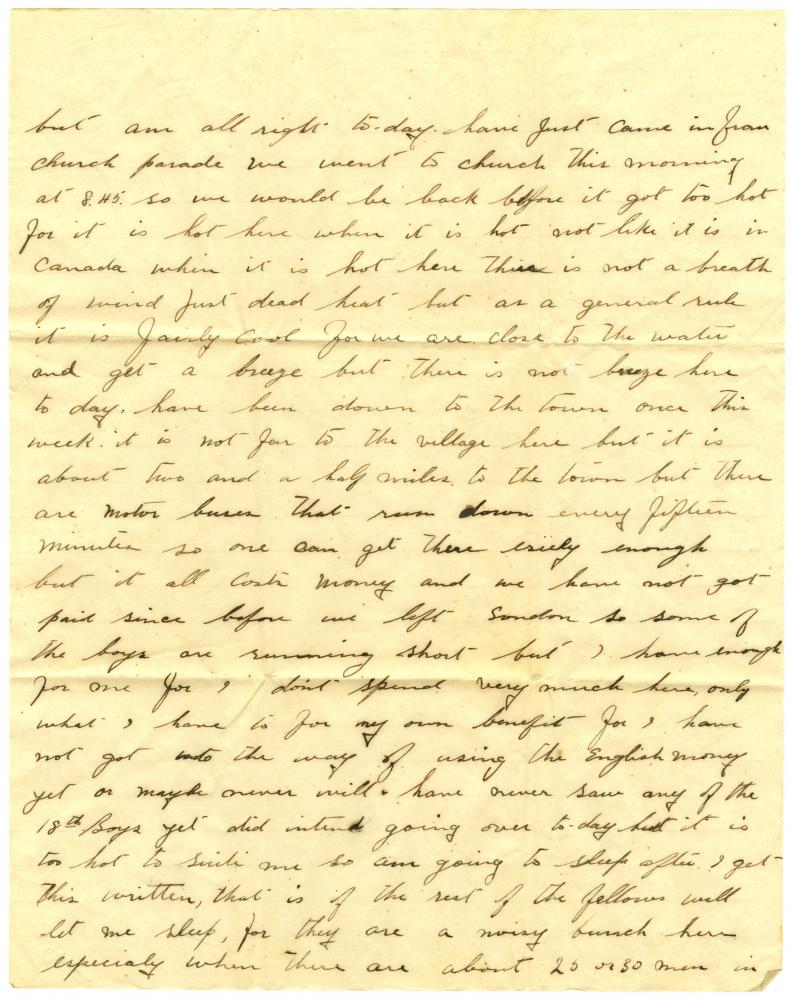 but am all right to-day. have just came in from
church parade we went to church this morning
at 8.45. so we would be back before it got too hot
for it is hot here when it is hot not like it is in
Canada when it is hot here there is not a breath
of wind just dead heat but as a general rule
it is fairly cool for we are close to the water
and get a breeze but there is not breeze here
to day. have been down to the town once this
week. it is not far to the village here but it is
about two and a half miles to the town but there
are motor buses that run down every fifteen
minutes so one can get there esiely enough
but it all costs money and we have not got
paid since before we left London so some of
the boys are running short but I have enough
for me for I don't spend very much here, only
what I have to for my own benefit for I have
not got into the way of using the English money
yet or maybe never will. have never saw any of the
18th Boys yet did intend going over to-day but it is
too hot to suite me so am going to sleep after I get
this written, that is if the rest of the fellows will
let me sleep, for they are a noisy bunch here
especialy when there are about 25 or 30 men in